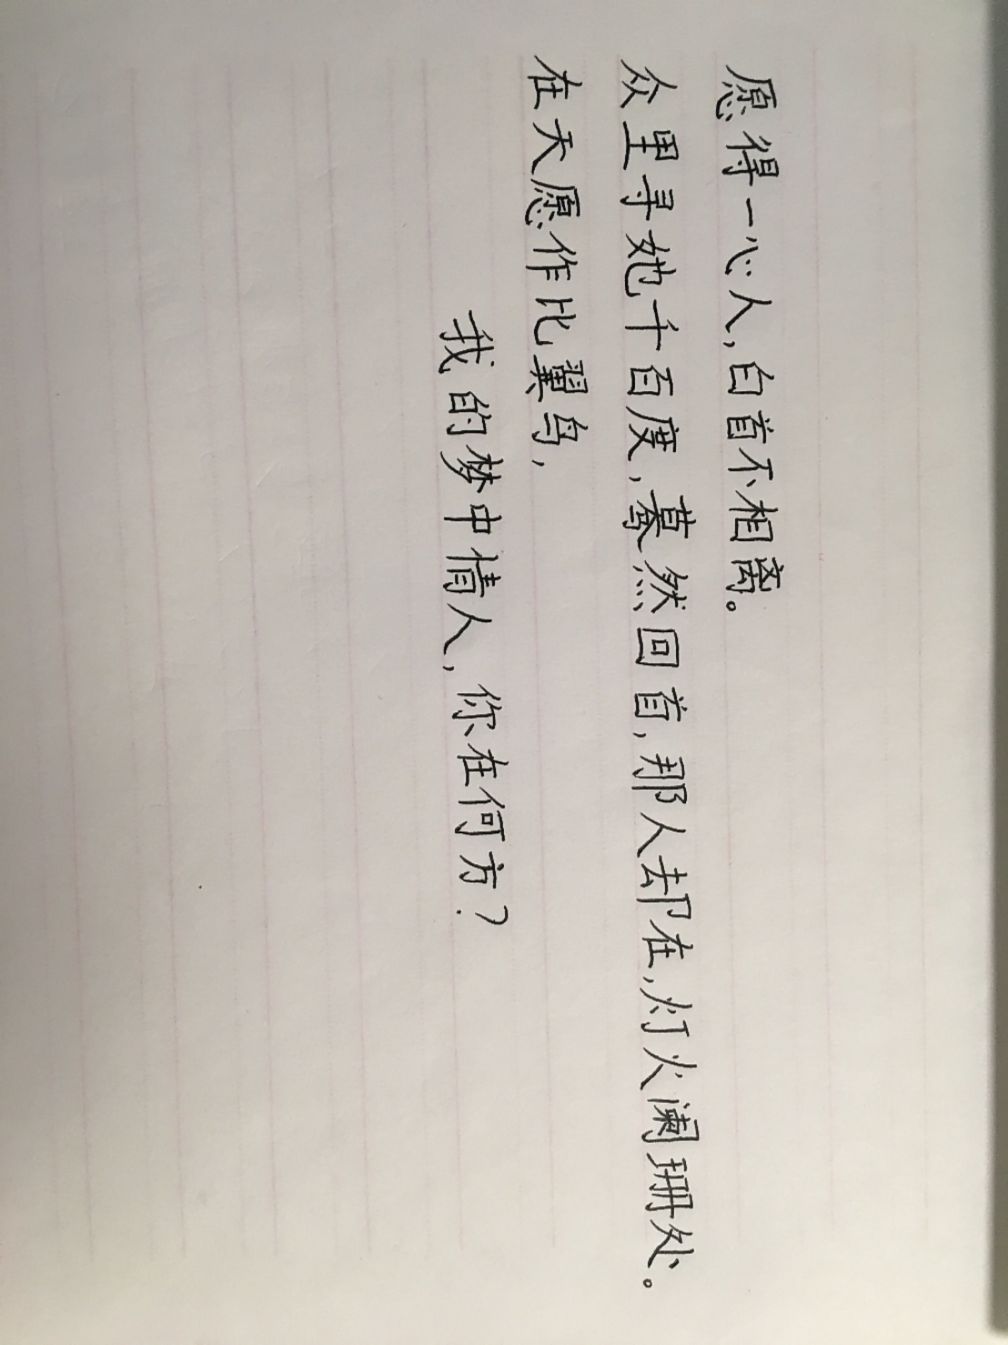 愿得一心人,白首不相离。
众里寻她千百度,蓦然回首,那人却在,灯火阑珊处。
在天愿作比翼鸟,
我的梦中情人,你在何方?